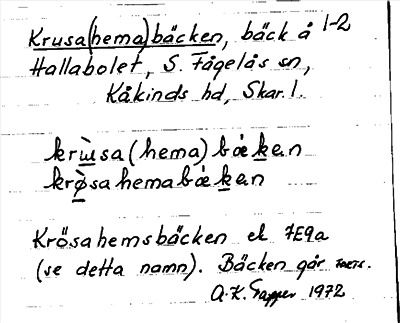 Krusa(hema)bäcken, bäck å 1-2
Hallabolet, S. Fågelås sn,
Kåkinds hd, Skar. l.
krùsa (hema) bækan
krø̀sahemabækan
Krösahemsbäcken ek 7E9a
(se detta namn). Bäcken går
A.K. 1972